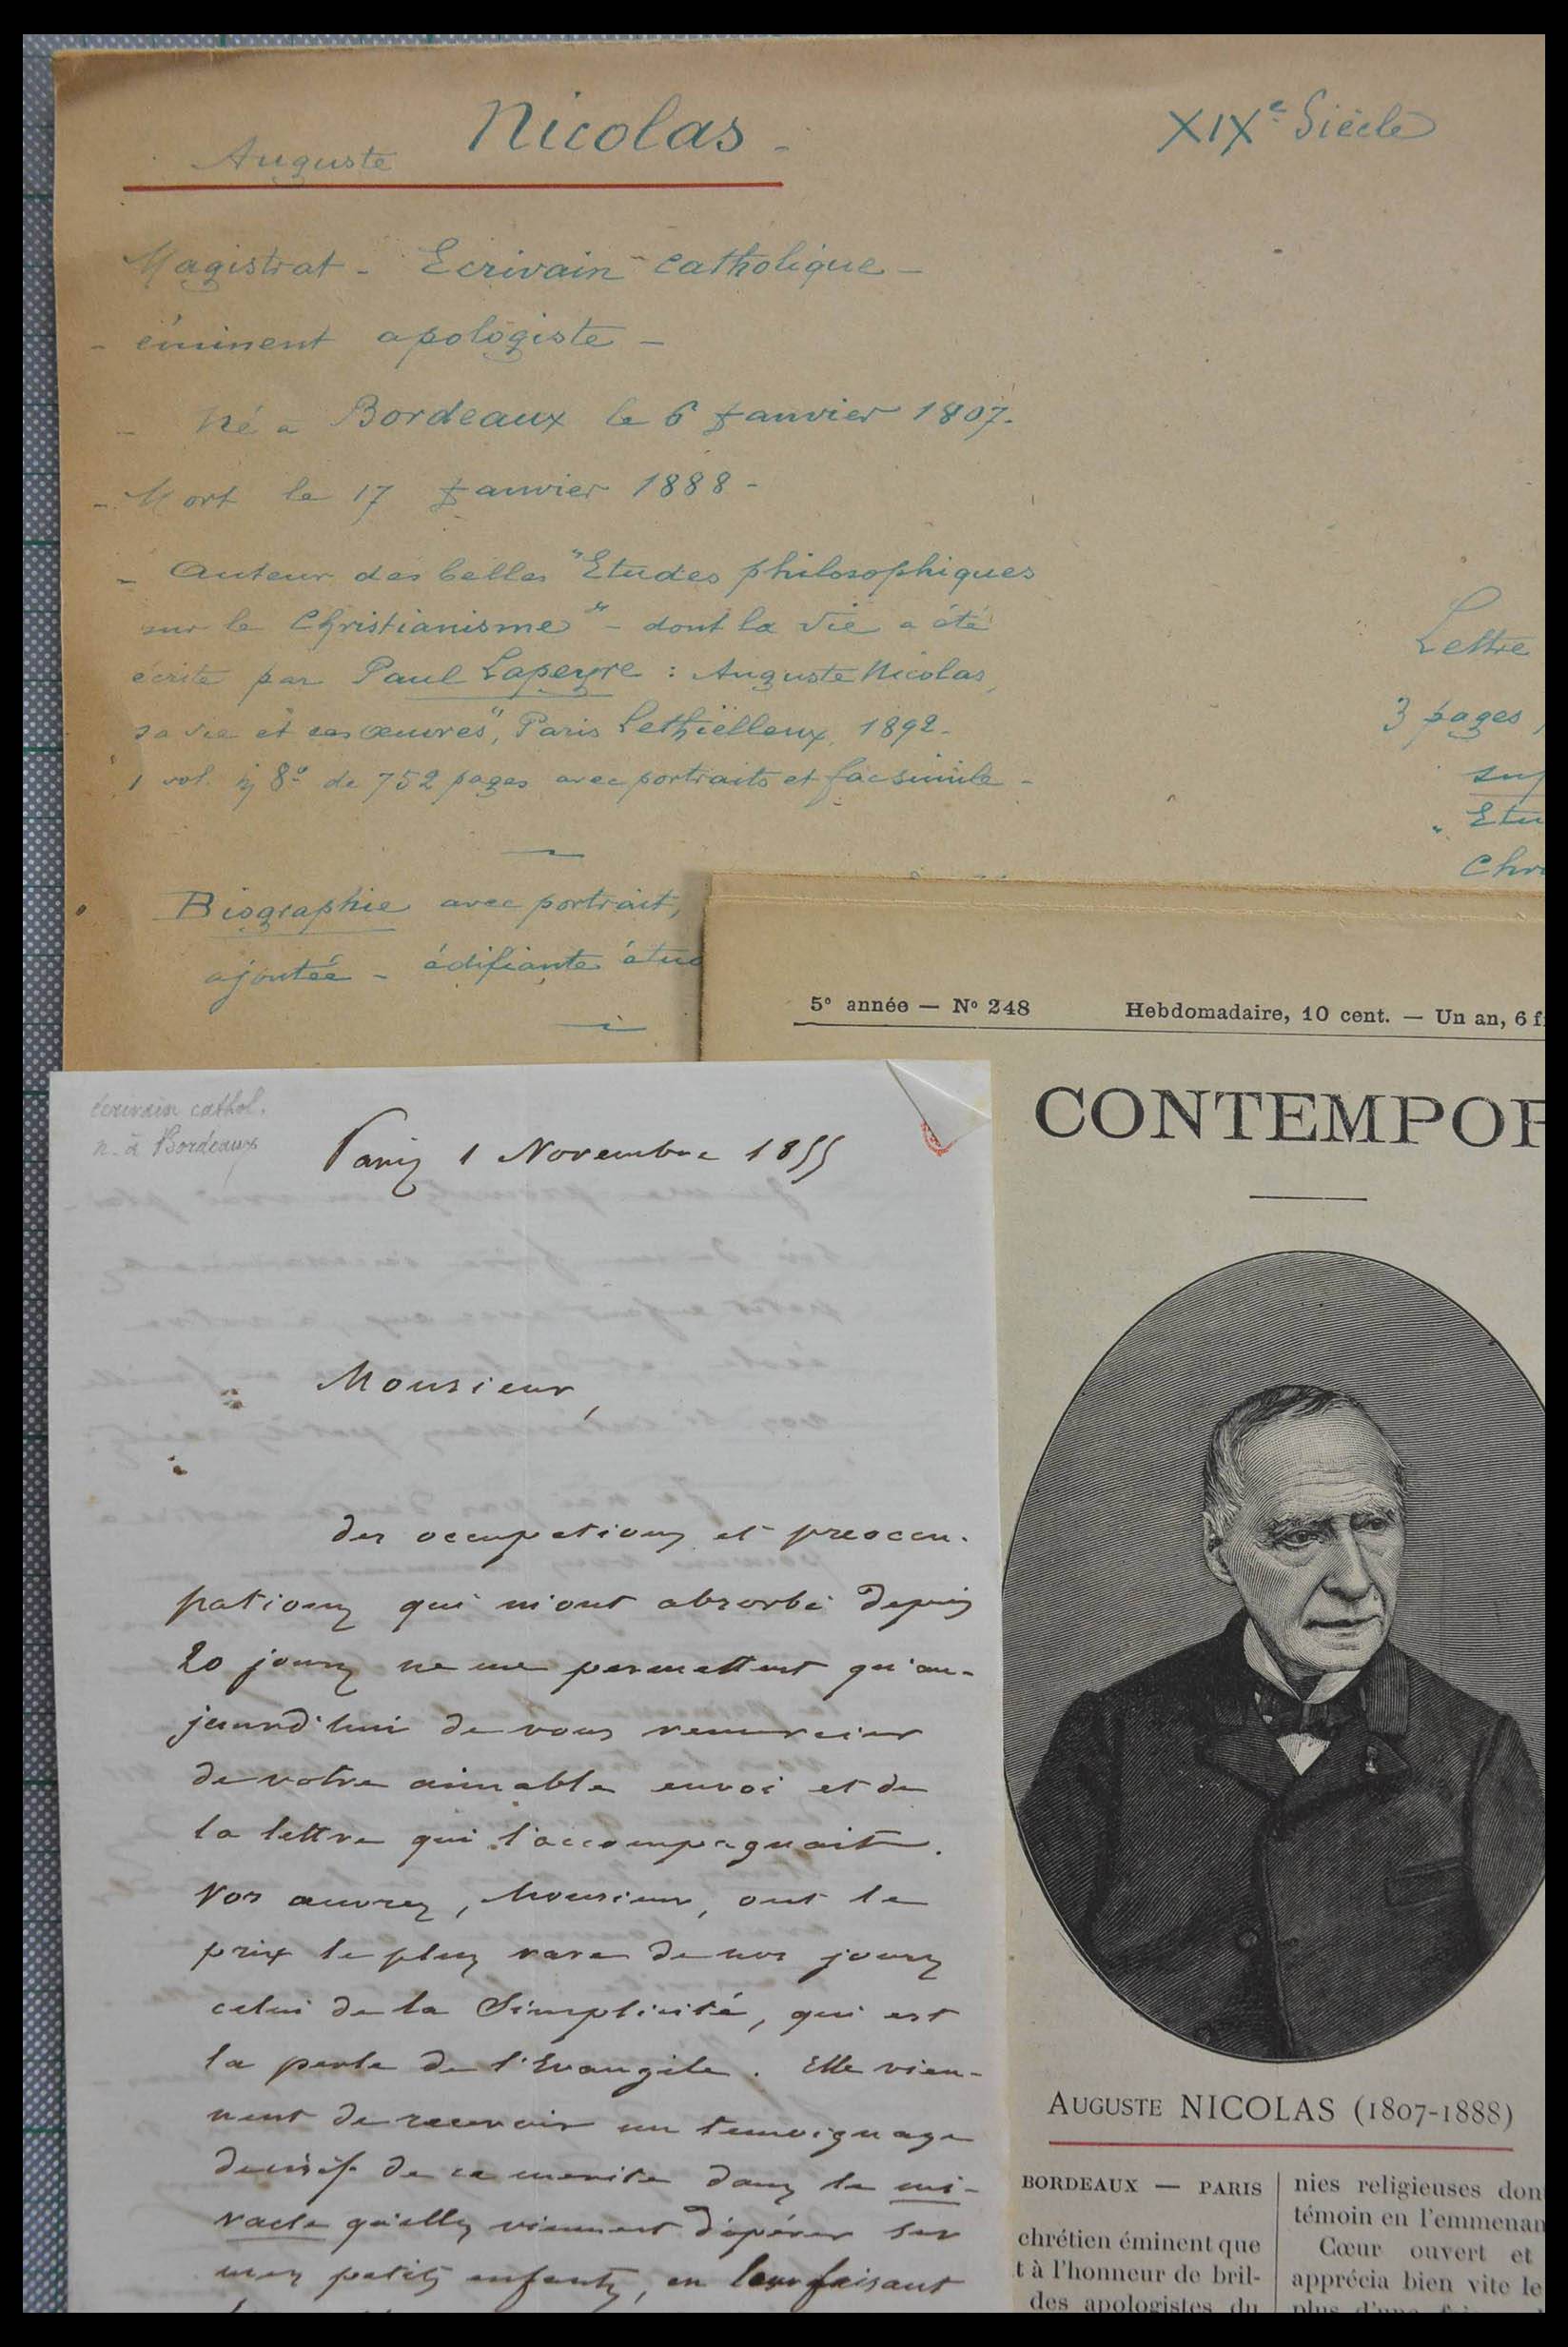 Auguste Nicolas -
XIXe Siècle
Magistrat - Ecrivain catholique -
- éminent apologiste -
- Né a Bordeaux le 6 Janvier 1807.
- Mort le 17 Janvier 1888 -
- Auteur des belles "Etudes philosophiques
sur le Christianisme" - dont la vie a été
écrite par Paul Lapeyre : Auguste Nicolas,
sa vie et ses œuvres", Paris Lethielleux, 1892 -
1 vol. in 8º de 752 pages avec portraits et facsimile -
Biographie avec portrait,
ajoutée - édifiante étud
Lettre
3 pages,
sup
" Etu
Chri
5e année — No 248
Hebdomadaire, 10 cent. — Un an, 6 f
CONTEMPOR
écrivain cathol.
n. à Bordeaux
Paris 1 Novembre 1855
Monsieur,
des occupations et préoccu-
pations qui m'ont absorbé depuis
20 jours ne me permettent qu'au-
jourd'hui de vous remercier
de votre aimable envoi et de
la lettre qui l'accompagnait.
Vos œuvres, Monsieur, ont le
prix le plus rare de nos jours
celui de la Simplicité, qui est
la perle de l'Evangile. Elle vien-
nent de recevoir un temoignage
decisif de ce merite dans le mi-
racle qu'elles viennent d'opérer sur
mes petits enfants, en leur faisant
AUGUSTE NICOLAS (1807-1888)
BORDEAUX — PARIS
chrétien éminent que
t à l'honneur de bril-
des apologistes du
nies religieuses don
témoin en l'emmenan
Cœur ouvert et
apprécia bien vite le
plus d'une